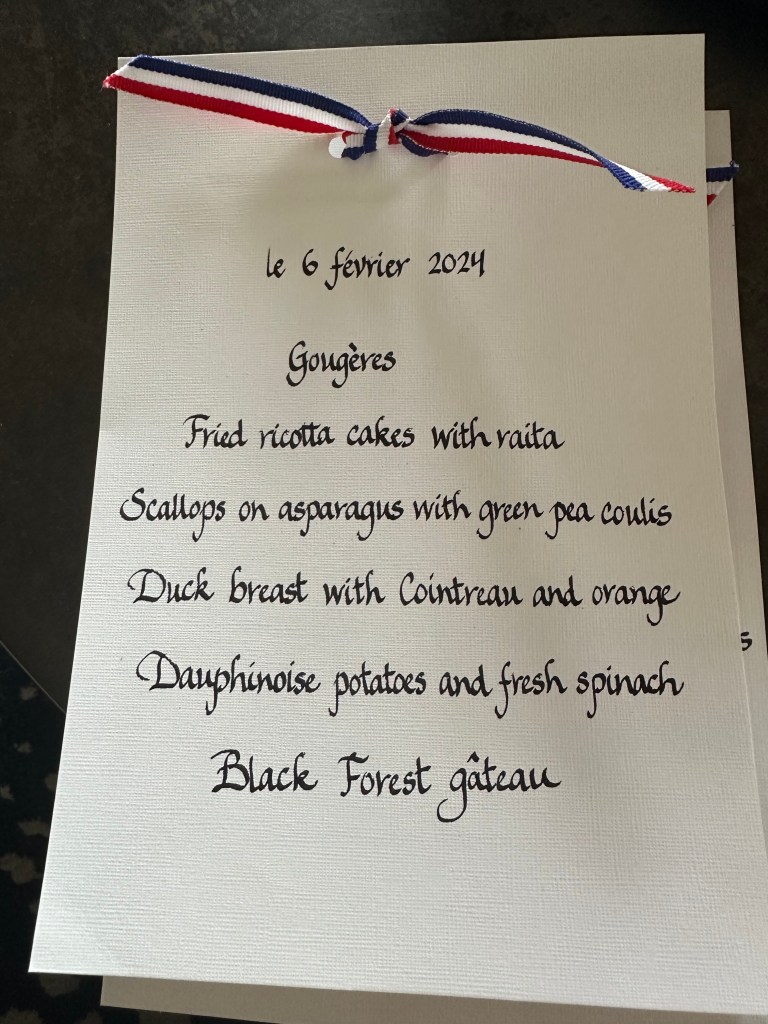 le 6 février 2024
Gougères
Fried ricotta cakes with raita
Scallops on asparagus with green pea coulis
Duck breast with Cointreau and orange
Dauphinoise potatoes and fresh spinach
Black Forest gâteau
s